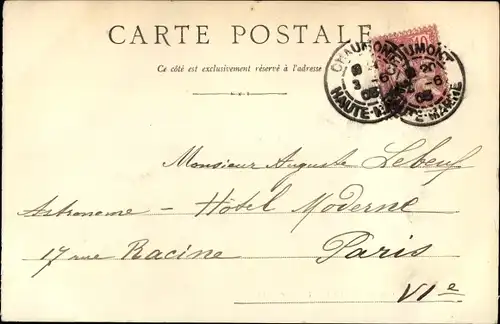 CARTE POSTALE
Ce côté est exclusivement réservé à l'adresse
10
CHAUMONT
HAUTE-MARNE
Monsieur Auguste Lebeuf
Astronome - Hôtel Moderne
17 rue Racine Paris
VIe